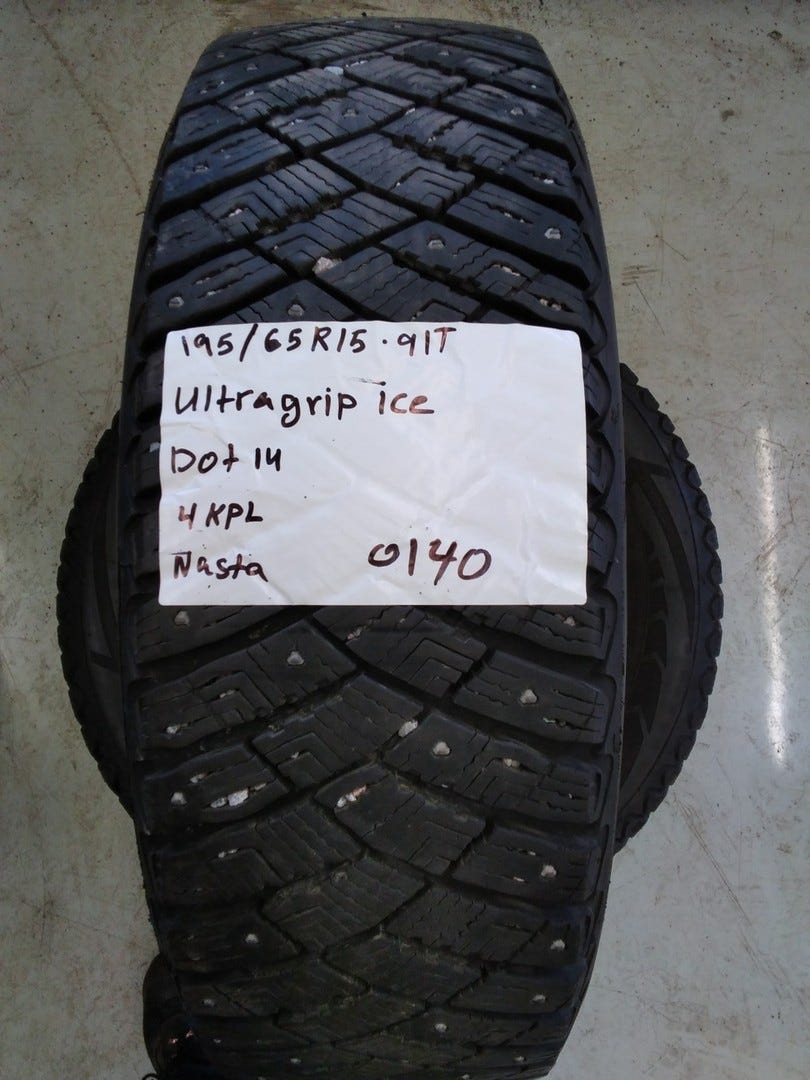 195/65R15.91T
Ultragrip ice
Dot 14
4 KPL
Nasta 0140